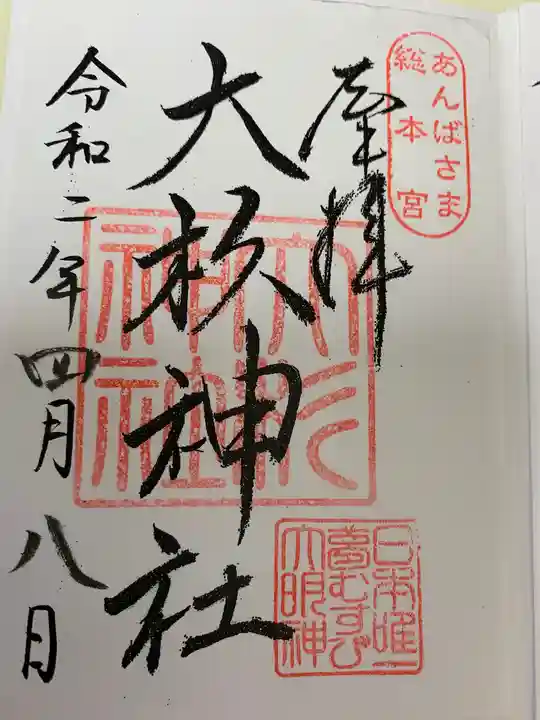 あんばさま
総本宮
奉拝
大杉神社
大杉
神社
日本唯一
夢むすび
大明神
令和二年四月八日